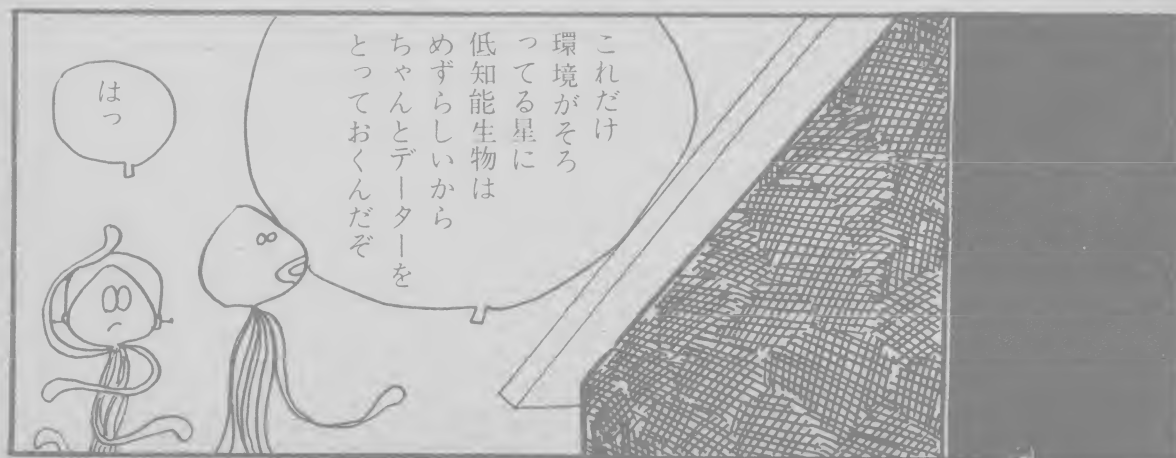 これだけ
環境がそろ
ってる星に
低知能生物は
めずらしいから
ちゃんとデーターを
とっておくんだぞ
はっ